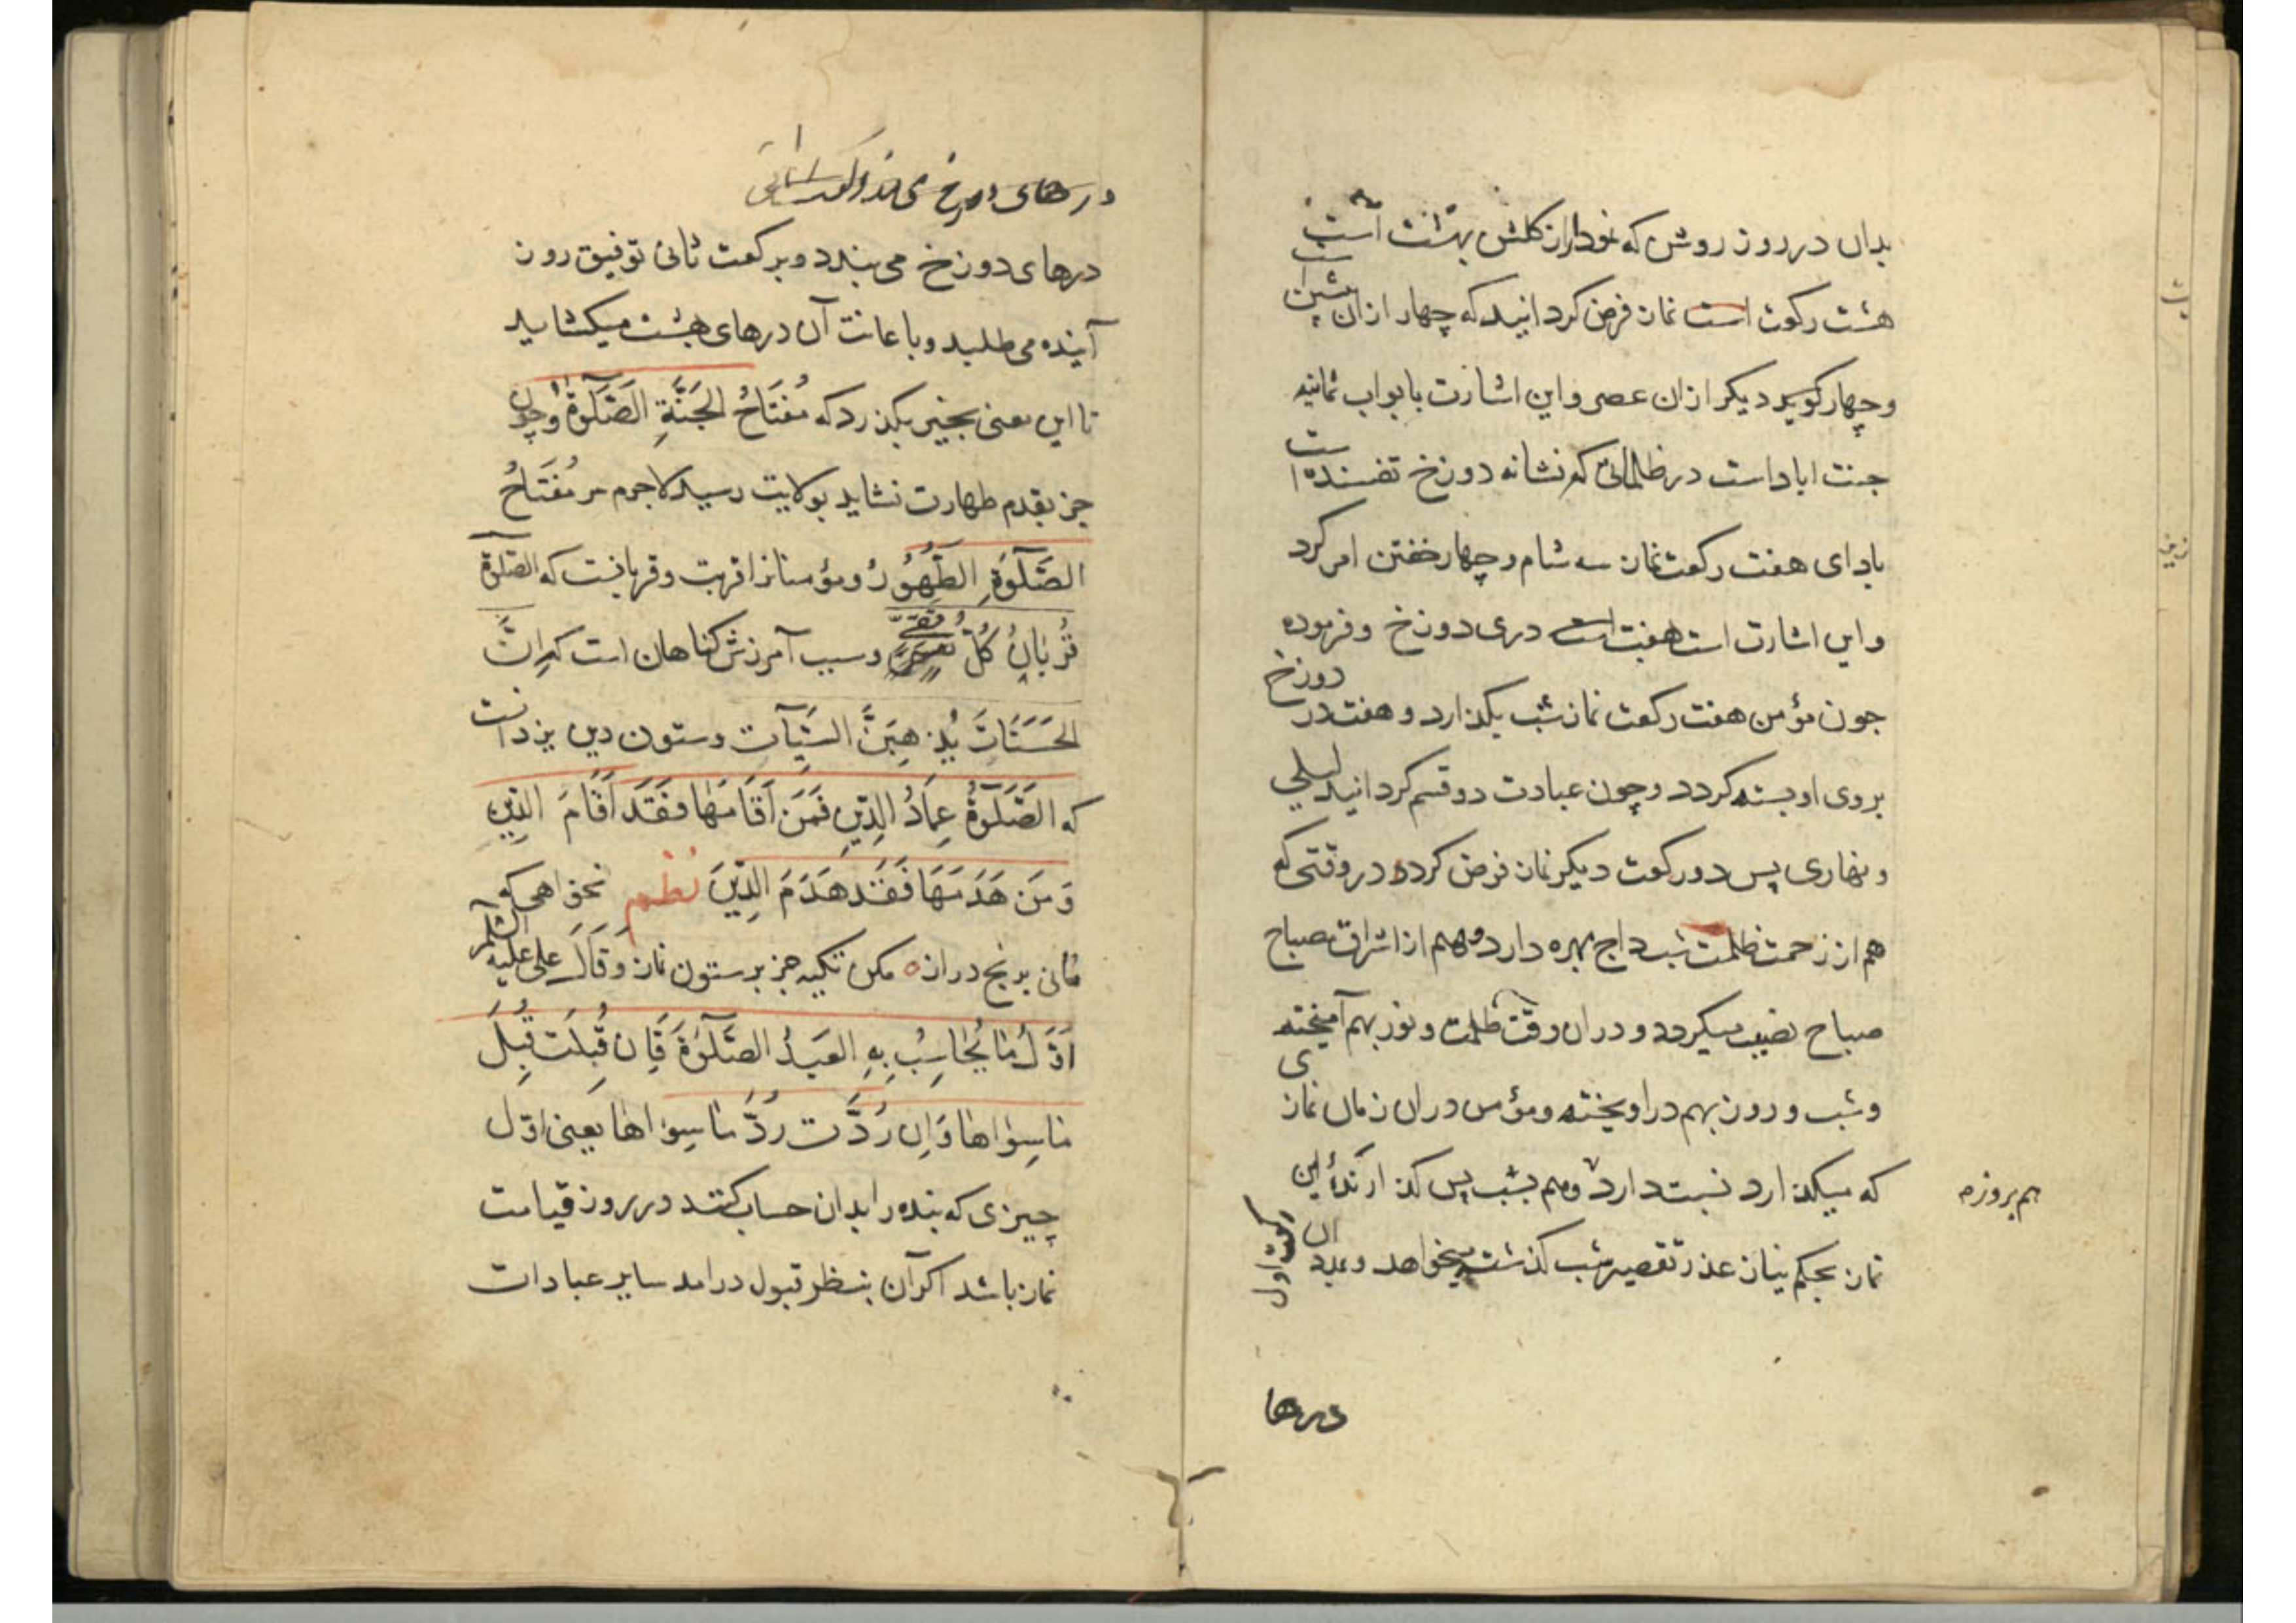 بدان در روز روشن که نمودار از کلشن بهشت است
هشت رکوت است نماز فرض کردانید که چهار ازان پیشین
وچهار کوید دیکر ازان عصر واین اشارت بابواب ثمانیه
جنت اباد است در ظلمانی که نشانه دوزخ تفسنده است
بادای هفت رکعت نماز سه شام وچهار خفتن امر کرد
واین اشارت است هفت است دری دوزخ وفرموده
جون مؤمن هفت رکعت نماز شب بکذارد وهفت در دوزخ
بروی او بسته کردد وچون عبادت دو قسم کردانید لیلی
ونهاری پس دو رکوت دیکر نماز فرض کرده در وقتی که
هم از زحمت ظلمت شب داج بهره دارد وهم از اشراق مصباح
صباح نصیب میکیرد ودران وقت ظلمت ونور بهم آمیخته
وشب وروز بهم دراویخته ومؤمن دران زمان نمازی
که میکذارد نسبت دارد وهم بشب پس کذارندۀ این
هم بروزم
نماز بحکم نیاز عذر تقصیر شب کذشته میخواهد وبمدد ان
رکعت اول
درها
درهای دوزخ می
درهای دوزخ می بندد وبرکعت ثانی توفیق روز
آینده می طلبد وباعانت آن درهای بهشت میکشاید
تا این معنی بجنین بکذرد که مُفتَاحُ الجَنَّةِ الصَّلَوةُ وچون
جز بقدم طهارت نشاید بولایت رسید لاجرم مر مُفتَاحُ
الصَّلَوٰةِ الطَّهُوُرُ ومؤمنانرا قربت وقربانیست که الصّلوة
قُربَانُ کُلِّ تَقِیّ وسبب آمرزش کناهان است که اِنَّ
الحَسَنَاتَ یُذهِبنَّ السَیِّآت وستون دین یزدانست
که الصَّلَوٰةُ عِمَادُ الدِّینِ فَمَن اَقَامَهَا فَقَد اَقَامَ الدِّینِ
وَمَن هَدَمَهَا فَقَد هَدَمَ الدِّینَ نظم نخواهی که
مانی برنج دراز مکن تکیه جز بر ستون نماز وَقَالَ علی علیه السّلام
اَوَّلُ مَا یُحَاسِبُ بِهِ العَبدُ الصَّلَوٰةَ فَاِن قُبِلَت قُبِلَ
مَاسِوَاهَا وَاِن رُدَّت رُدَّ مَاسِوَاهَا یَعنی اوّل
چیزی که بنده را بدان حساب کنند در روز قیامت
نماز باشد اکر آن بنظر قبول درامد سایر عبادات